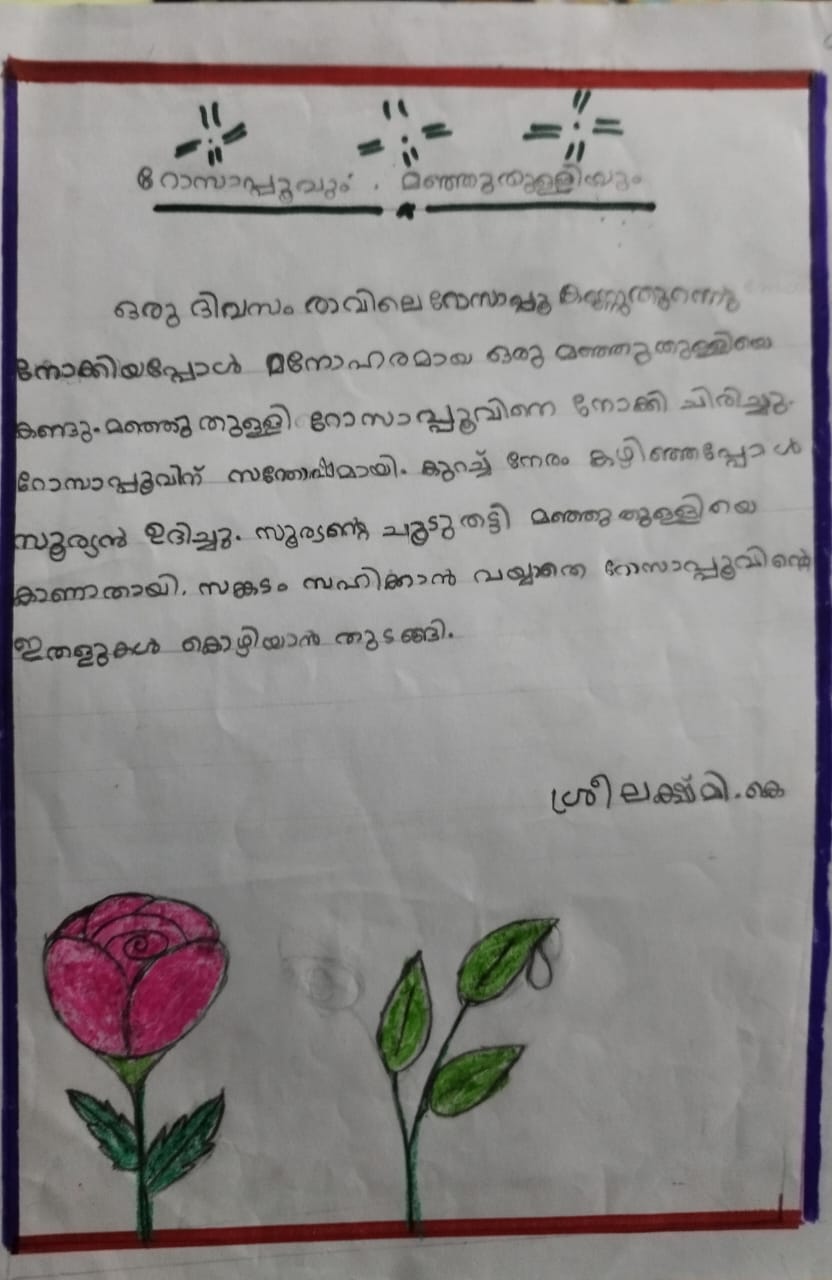 റോസാപ്പൂവും മഞ്ഞുതുള്ളിയും
ഒരു ദിവസം രാവിലെ റോസാപ്പൂ കണ്ണുതുറന്നു
നോക്കിയപ്പോൾ മനോഹരമായ ഒരു മഞ്ഞുതുള്ളിയെ
കണ്ടു. മഞ്ഞു തുള്ളി റോസാപ്പൂവിനെ നോക്കി ചിരിച്ചു.
റോസാപ്പൂവിന് സന്തോഷമായി. കുറച്ച് നേരം കഴിഞ്ഞപ്പോൾ
സൂര്യൻ ഉദിച്ചു. സൂര്യന്റെ ചൂടു തട്ടി മഞ്ഞു തുള്ളിയെ
കാണാതായി. സങ്കടം സഹിക്കാൻ വയ്യാതെ റോസാപ്പൂവിന്റെ
ഇതളുകൾ കൊഴിയാൻ തുടങ്ങി.
ശ്രീലക്ഷ്മി. കെ